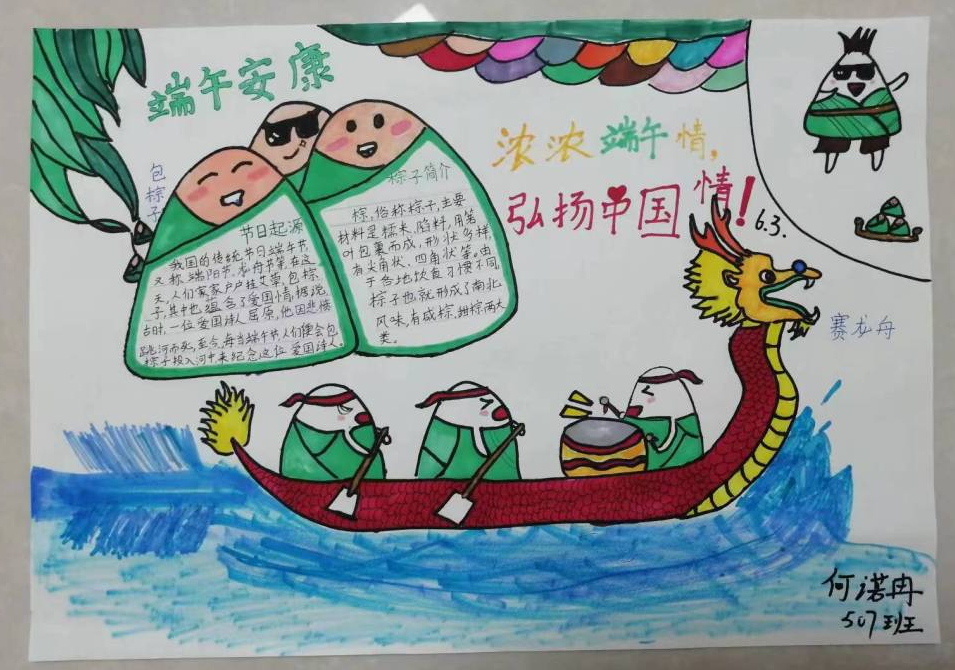 端午安康
浓浓端午情，
弘扬中国情！
6.3.
包
粽
子
节日起源
我国的传统节日端午节
又称端阳节，龙舟节等，在这
天，人们家家户户挂艾草，包粽
子，其中也蕴含了爱国情，据说，
古时，一位爱国诗人屈原，他因悲愤
跳河而死，至今，每当端午节人们便会包
粽子投入河中来纪念这位爱国诗人。
粽子简介
粽，俗称粽子，主要
材料是糯米、陷料，用箬
叶包裹而成，形状多样，
有尖角状、四角状等。由
于各地饮食习惯不同，
粽子也就形成了南北
风味，有咸粽、甜粽两大
类。
赛龙舟
何诺冉
507班